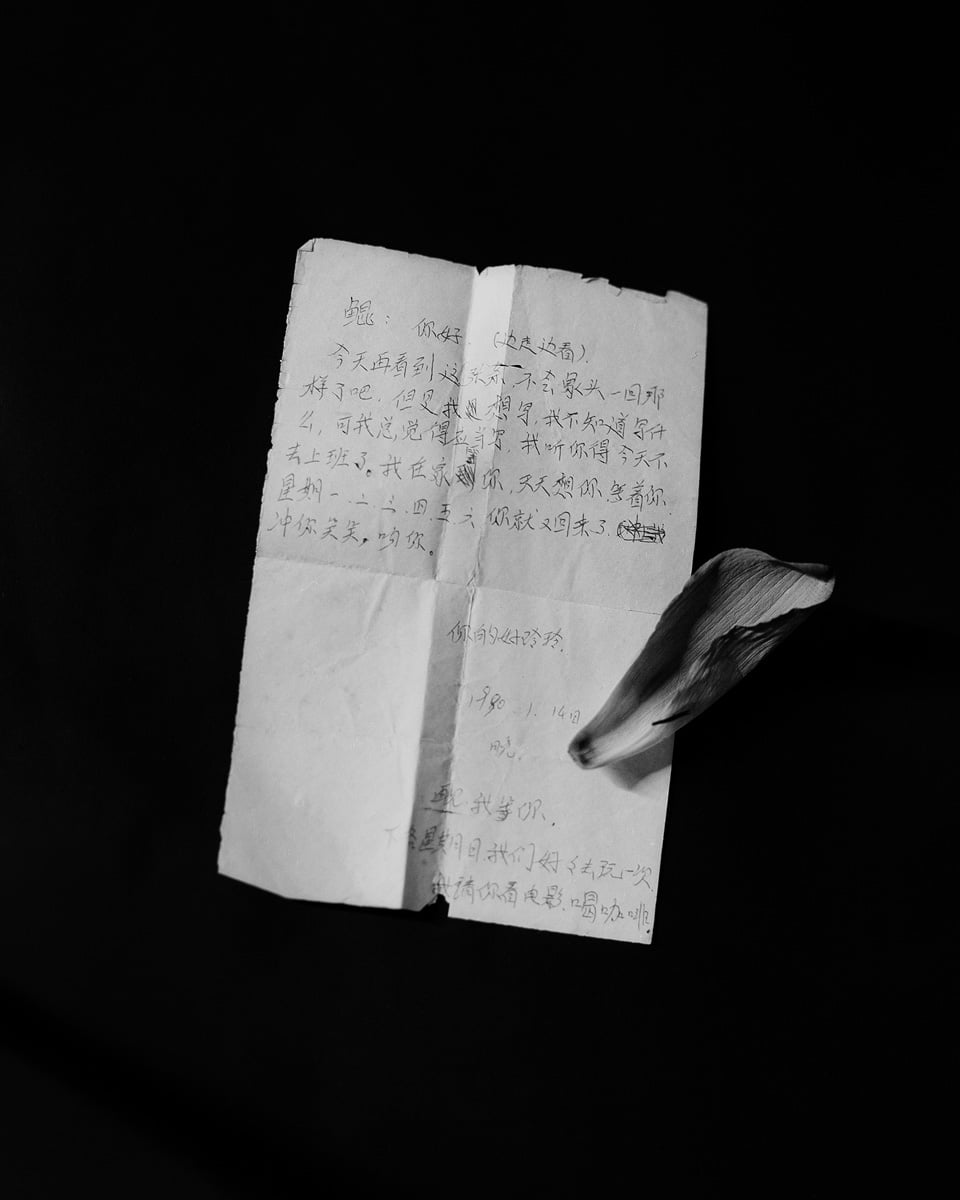 鲲： 你好 （边走边看）.
今天再看到这张条,不会象头一回那
样了吧，但是我还想写,我不知道写什
么，可我总觉得应当写，我听你得今天不
去上班了。我在家 你，天天想你.等着你.
星期一.二.三.四.五.六 你就又回来了.
冲你笑笑，吻你。
你的好玲玲.
1990.1.14日
晚.
我等你.
下个星期日.我们好好去玩一次
我请你看电影.喝咖啡.